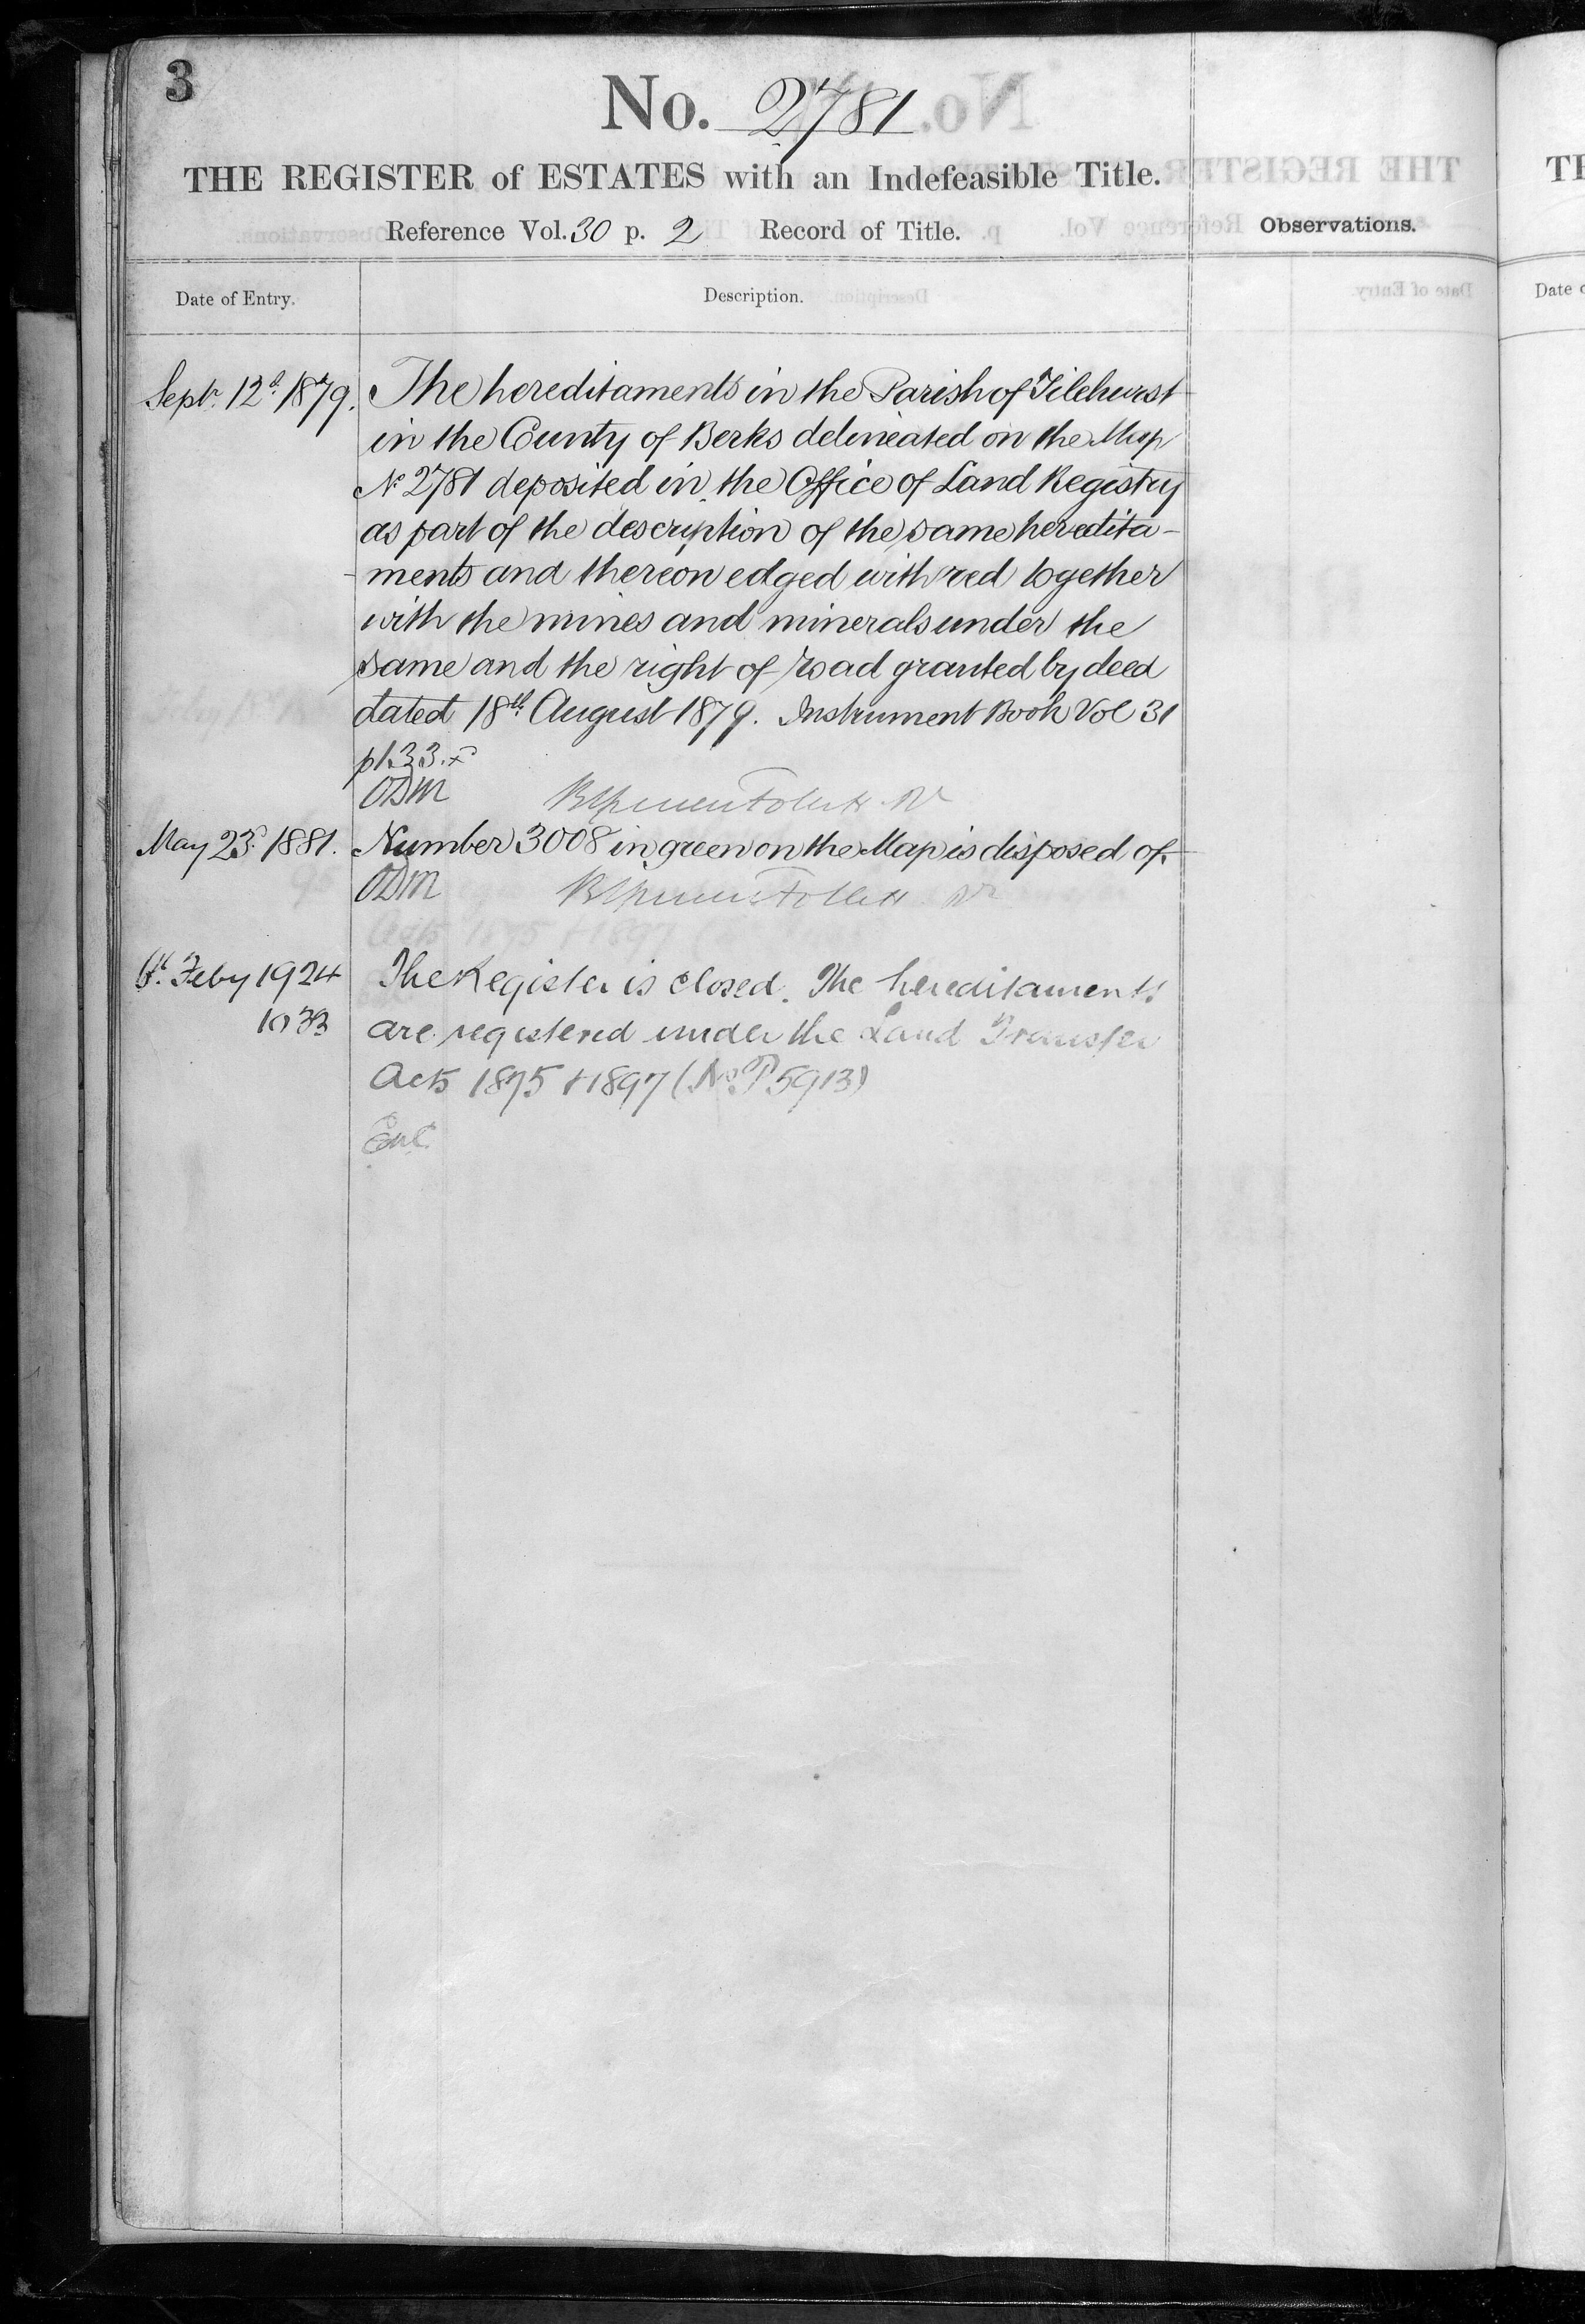 3
No. 2781
THE REGISTER of ESTATES with an Indefeasible Title.
Reference Vol. 30 p. 2 Record of Title.
Observations.
Date of Entry.
Description.
Septr. 12th 1879.
The hereditaments in the Parish of Tilehurst
in the County of Berks delineated on the Map
No 2781 deposited in the Office of Land Registry
as part of the description of the same heredita-
-ments and thereon edged with red together
with the mines and minerals under the
same and the right of road granted by deed
dated 18th August 1879. Instrument Book Vol 31
p133.
ODM
May 23rd 1881.
Number 3008 in green on the Map is disposed of.
ODM
Feby 1924
The Register is closed. The hereditaments
are registered under the Land Transfer
Acts 1875 & 1897 (No P5913)